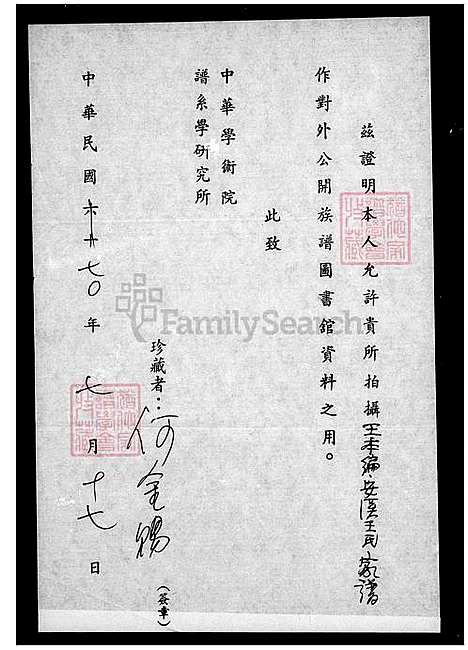 茲證明本人允許貴所拍攝王本編安溪王氏家譜
作對外公開族譜圖書館資料之用。
此致
中華學術院
譜系學研究所
珍藏者：何金賜（簽章）
中華民國七〇年七月十七日
FamilySearch